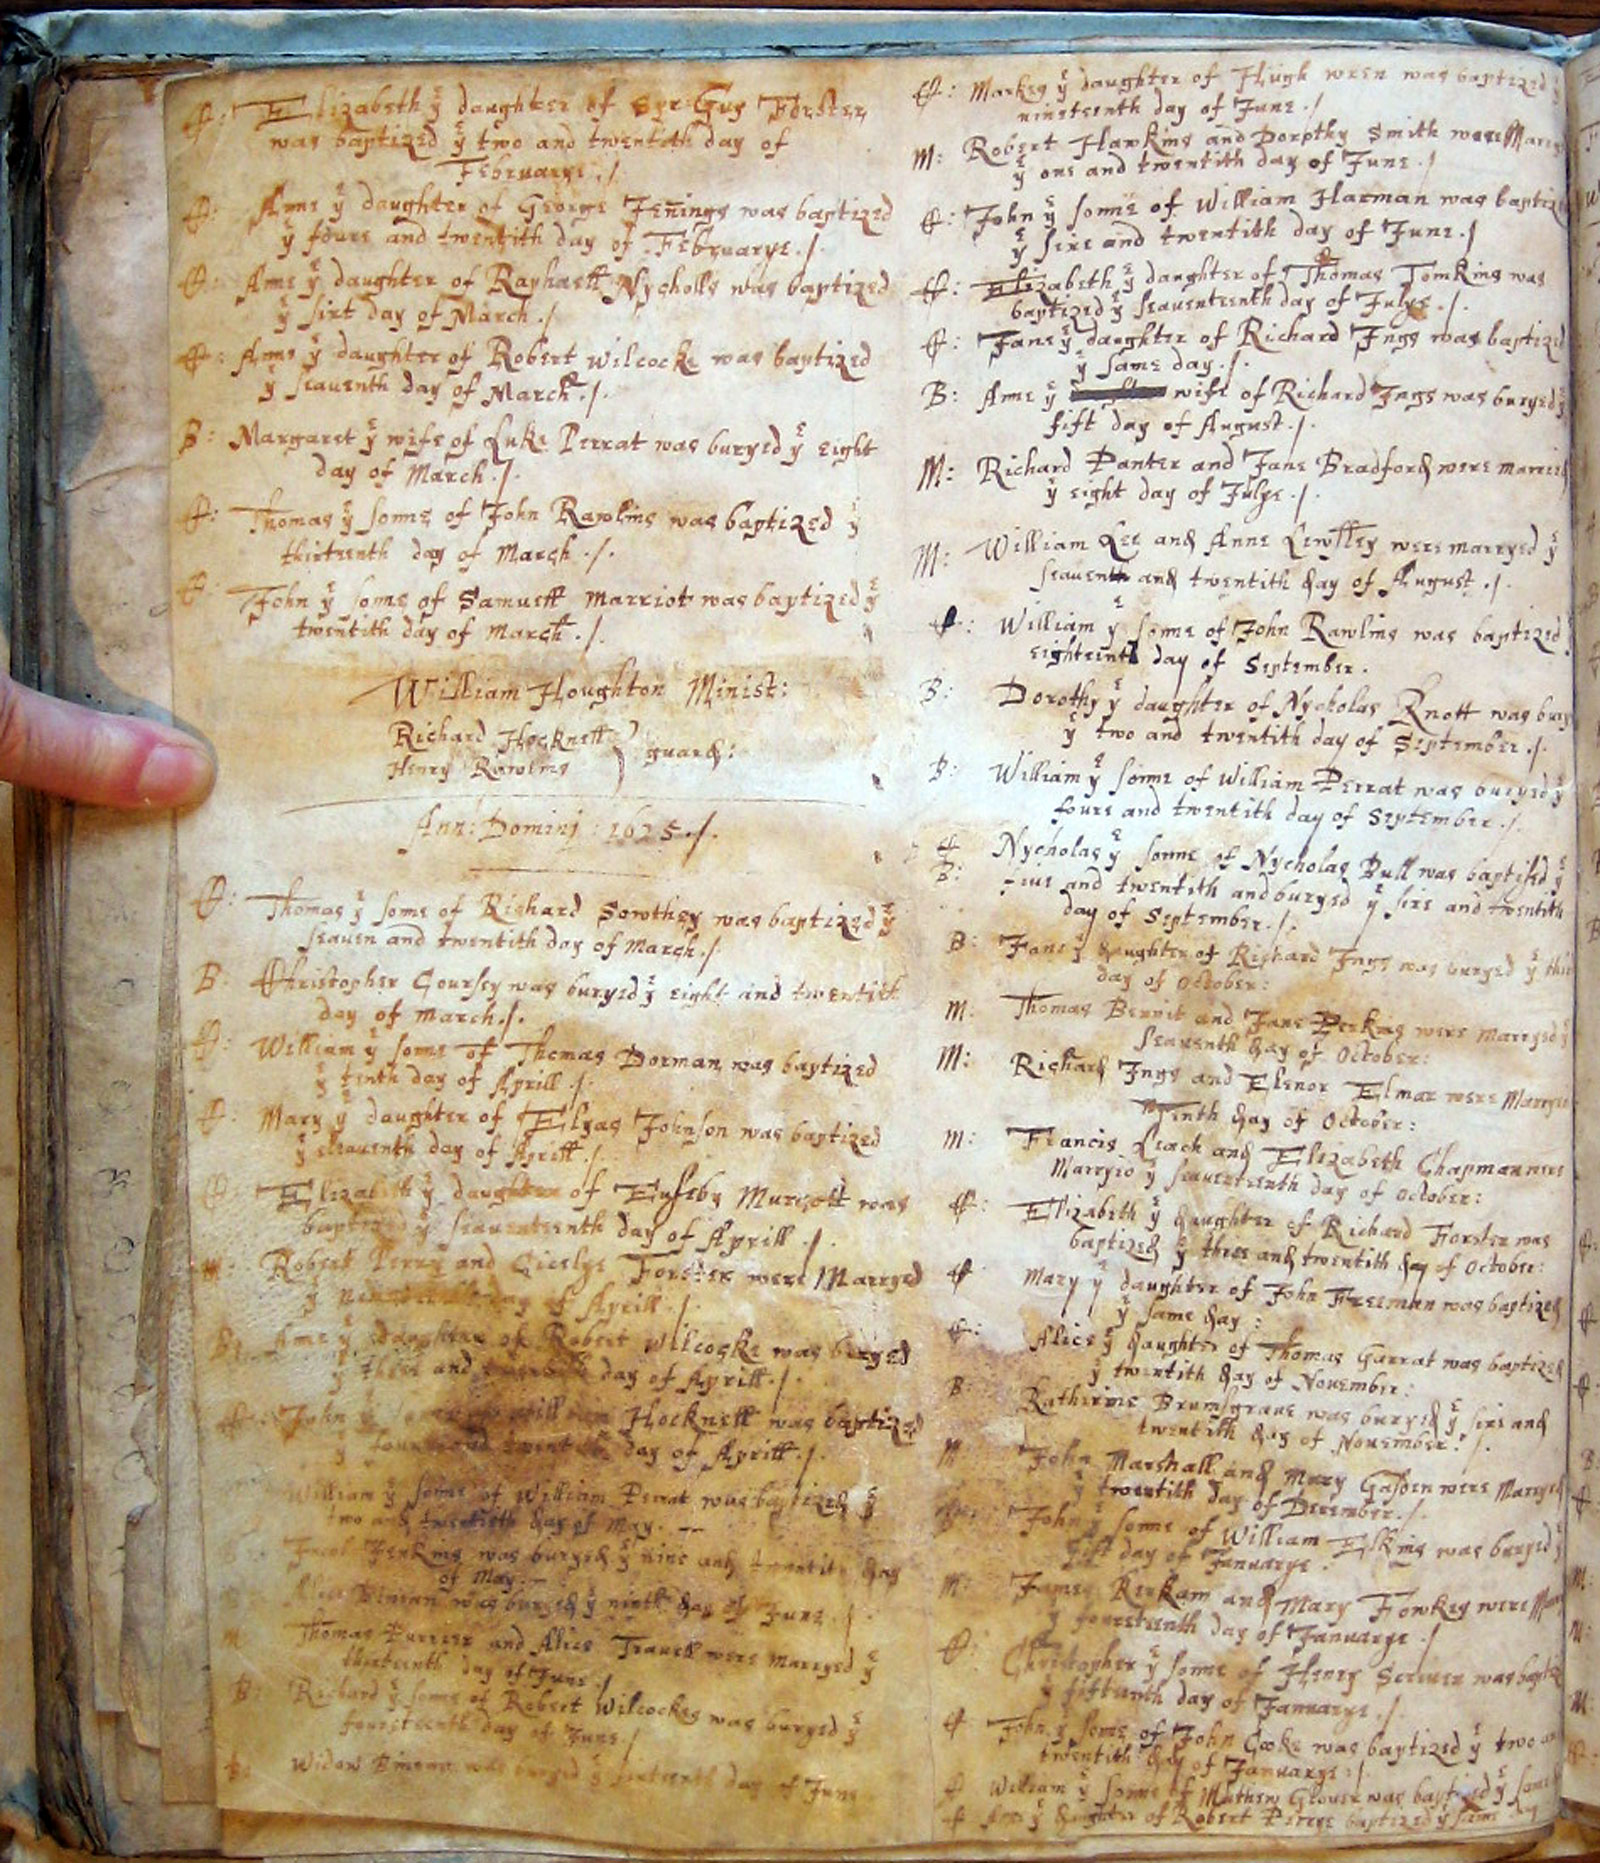 C: Elizabeth yͤ daughter of Syr Guy Forster
was baptized yͤ two and twentith day of
Februarye ./.
C: Anne yͤ daughter of George Jenings was baptized
yͤ foure and twentith day of Februarye ./.
C: Anne yͤ daughter of Raphaell Nycholls was baptized
yͤ sixt day of March ./
C: Anne yͤ daughter of Robert Wilcocke was baptized
yͤ seauenth day of March ./.
B: Margaret yͤ wife of Luke Perrat was buryed yͤ eight
day of March ./.
C: Thomas yͤ sonne of John Rawlins was baptized yͤ
thirteenth day of March ./.
C: John yͤ sonne of Samuell Marriot was baptized yͤ
twentith day of March ./.
William Houghton Minist:
Richard Hocknell
Henry Rawlins } guard:
Ann: Dominj: 1625 ./.
C: Thomas yͤ sonne of Richard Sowthey was baptized yͤ
seauen and twentith day of March ./
B: Christopher Coursey was buryed yͤ eight and twentith
day of March ./.
C: William yͤ sonne of Thomas Dorman was baptized
yͤ tenth day of Aprill ./.
C: Mary yͤ daughter of Elyas Johnson was baptized
yͤ eleauenth day of Aprill ./.
C: Elizabeth yͤ daughter of Euseby Murcott was
baptized yͤ seauenteenth day of Aprill ./.
M: Robert Perry and Cicelye Forster were Marryed
yͤ day of Aprill ./.
B: Anne yͤ daughter of Robert Wilcocke was buryed
yͤ three and twentith day of Aprill ./.
C: John yͤ sonne of William Hocknell was baptized
yͤ foure and twentith day of Aprill ./.
William yͤ sonne of William Perrat was baptized yͤ
two and twentieth day of May.
Jenkins was buryed yͤ nine and twentith day
of May.
Alice was buryed yͤ ninth day of June ./.
M Thomas Purcer and Alice Travell were marryed yͤ
thirteenth day of June ./
B: Richard yͤ sonne of Robert Wilcockes was buryed yͤ
fourteenth day of June ./
B: Widow was buryed yͤ day of June
C: Markey yͤ daughter of Hugh Wren was baptized yͤ
nineteenth day of June ./
M: Robert Hawkins and Dorothy Smith were Marry
yͤ one and twentith day of June ./
C: John yͤ sonne of William Harman was baptiz
yͤ sixe and twentith day of June ./
C: Elizabeth yͤ daughter of Thomas Tomkins was
baptized yͤ seauenteenth day of Julye ./.
C: Jane yͤ daughter of Richard Ings was baptized
yͤ same day ./.
B: Anne yͤ wife of Richard Ings was buryed yͤ
fift day of August ./.
M: Richard Danter and Jane Bradford were married
yͤ eight day of Julye ./.
M: William Lee and Anne Lewsley were marryed yͤ
seauenth and twentith day of August ./.
C: William yͤ sonne of John Rawlins was baptized
eighteenth day of September.
B: Dorothy yͤ daughter of Nycholas Knott was bury
yͤ two and twentith day of September ./.
B: William yͤ sonne of William Perrat was buryed yͤ
foure and twentith day of September ./.
C Nycholas yͤ sonne of Nycholas Bull was baptised yͤ
B: fiue and twentith and buryed yͤ sixe and twentith
day of September ./.
B: Jane yͤ daughter of Richard Ings was buryed yͤ thi
day of October:
M: Thomas Bennit and Jane Perkins were marryed yͤ
seauenth day of October:
M: Richard Ings and Elenor Elmar were Marryed
Tenth day of October:
M: Francis Leach and Elizabeth Chapman were
Marryed yͤ seauenteenth day of October:
C: Elizabeth yͤ daughter of Richard Forster was
baptized yͤ three and twentith day of October:
C Mary yͤ daughter of John Freeman was baptized
yͤ same day:
C: Alice yͤ daughter of Thomas Garrat was baptized
yͤ twentith day of Nouember:
B: Katherine Brumsgraue was buryed yͤ sixe and
twentith day of Nouember: ./.
M: John Marshall and Mary were Marryed
yͤ twentith day of December ./.
John yͤ sonne of William Elkins was buryed yͤ
fift day of Januarye.
M: James Kirkam and Mary Fowkes were Marr
yͤ fourteenth day of Januarye ./
C: Christopher yͤ sonne of Henry Scriuer was bapti
yͤ fifteenth day of Januarye ./
C John yͤ sonne of John Cooke was baptized yͤ two an
twentith day of Januarye: ./.
C William yͤ sonne of Mathew Glouer was baptized yͤ same
C Ann yͤ daughter of Robert baptized yͤ same day